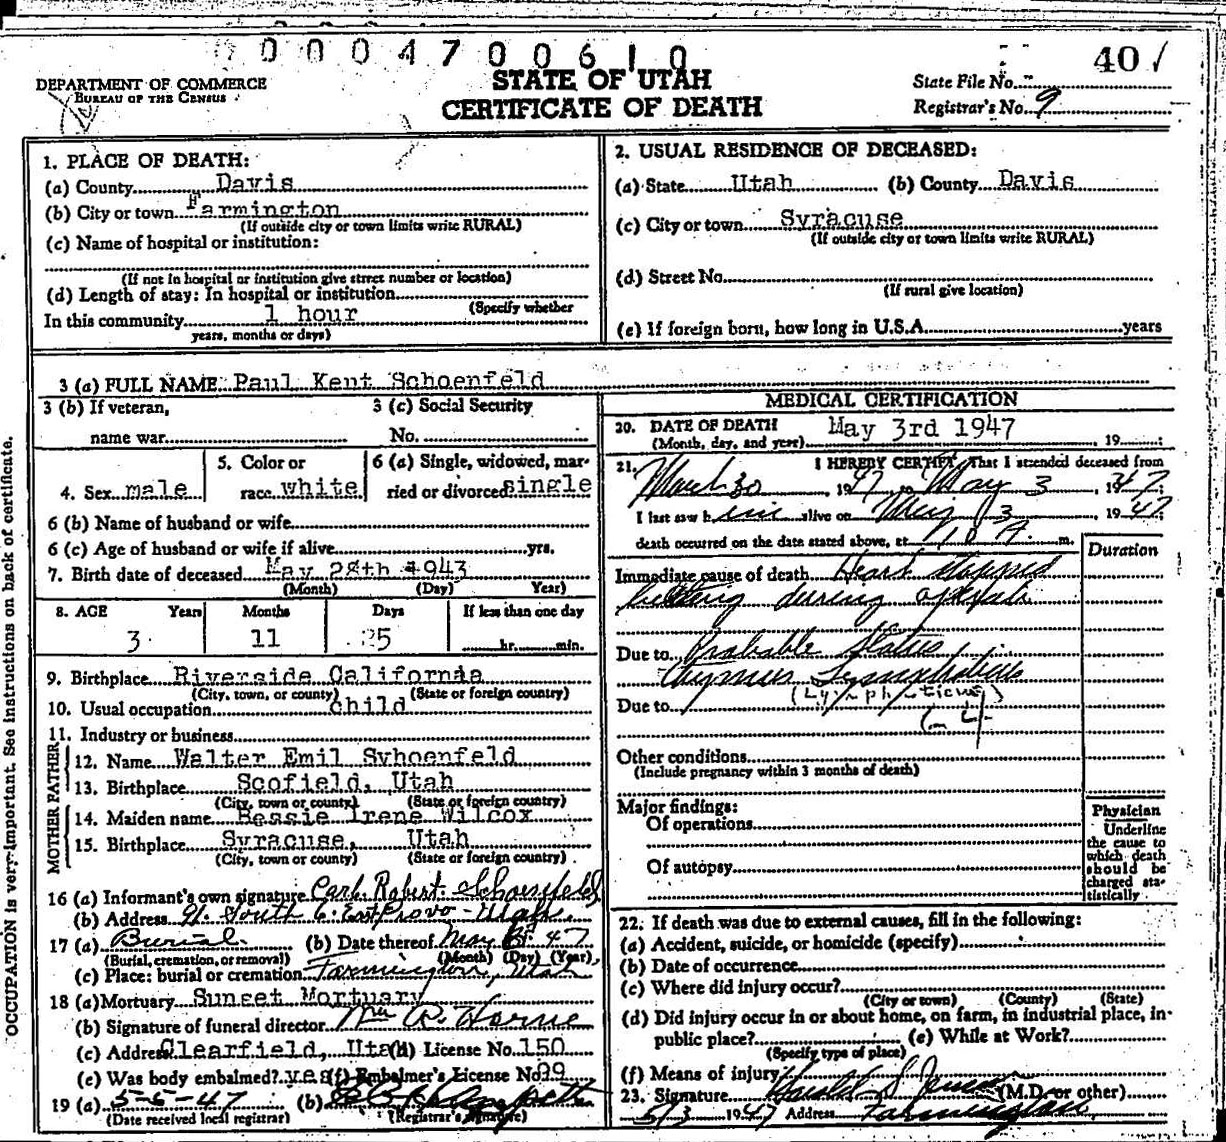 0004700610
401
DEPARTMENT OF COMMERCE
BUREAU OF THE CENSUS
STATE OF UTAH
CERTIFICATE OF DEATH
State File No.
Registrar's No. 9
1. PLACE OF DEATH:
(a) County Davis
(b) City or town Farmington
(If outside city or town limits write RURAL)
(c) Name of hospital or institution:
(If not in hospital or institution give street number or location)
(d) Length of stay: In hospital or institution
(Specify whether
In this community 1 hour
years, months or days)
2. USUAL RESIDENCE OF DECEASED:
(a) State Utah (b) County Davis
(c) City or town Syracuse
(If outside city or town limits write RURAL)
(d) Street No.
(If rural give location)
(e) If foreign born, how long in U.S.A. years
3 (a) FULL NAME Paul Kent Schoenfeld
3 (b) If veteran, 3 (c) Social Security
name war No.
4. Sex male 5. Color or race white 6 (a) Single, widowed, married or divorced single
6 (b) Name of husband or wife
6 (c) Age of husband or wife if alive yrs.
7. Birth date of deceased May 28th 1943
(Month) (Day) Year)
8. AGE Years Months Days If less than one day
3 11 25 hr. min.
9. Birthplace Riverside California
(City, town, or county) (State or foreign country)
10. Usual occupation child
11. Industry or business
FATHER
12. Name Walter Emil Svhoenfeld
13. Birthplace Scofield, Utah
(City, town or county) (State or foreign country)
MOTHER
14. Maiden name Bessie Irene Wilcox
15. Birthplace Syracuse, Utah
(City, town or county) (State or foreign country)
16 (a) Informant's own signature Carl Robert Schoenfeld
(b) Address South Provo - Utah
17 (a) Burial (b) Date thereof May 47
(Burial, cremation, or removal) (Month) (Day) (Year)
(c) Place: burial or cremation Farmington, Utah
18 (a) Mortuary Sunset Mortuary
(b) Signature of funeral director Wm R. Horne
(c) Address Clearfield, Utah (d) License No. 150
(e) Was body embalmed? yes (f) Embalmer's License No. 99
19 (a) 5-5-47 (b)
(Date received local registrar) (Registrar's signature)
MEDICAL CERTIFICATION
20. DATE OF DEATH May 3rd 1947
(Month, day, and year) 19
21. I HEREBY CERTIFY, That I attended deceased from
March 30, 1947 to May 3, 1947;
I last saw him alive on May 3 1947
death occurred on the date stated above, at A. m.
Duration
Immediate cause of death Heart stopped
beating during
Due to Probable Status
Thymus Lymphaticus
(Lymphaticus)
Due to
Other conditions
(Include pregnancy within 3 months of death)
Major findings:
Of operations
Of autopsy
Physician
Underline
the cause to
which death
should be
charged sta-
tistically
22. If death was due to external causes, fill in the following:
(a) Accident, suicide, or homicide (specify)
(b) Date of occurrence
(c) Where did injury occur?
(City or town) (County) (State)
(d) Did injury occur in or about home, on farm, in industrial place, in-
public place? (e) While at Work?
(Specify type of place)
(f) Means of injury
23. Signature Harold S (M.D. or other)
5/3 1947 Address Farmington
OCCUPATION is very important. See instructions on back of certificate.